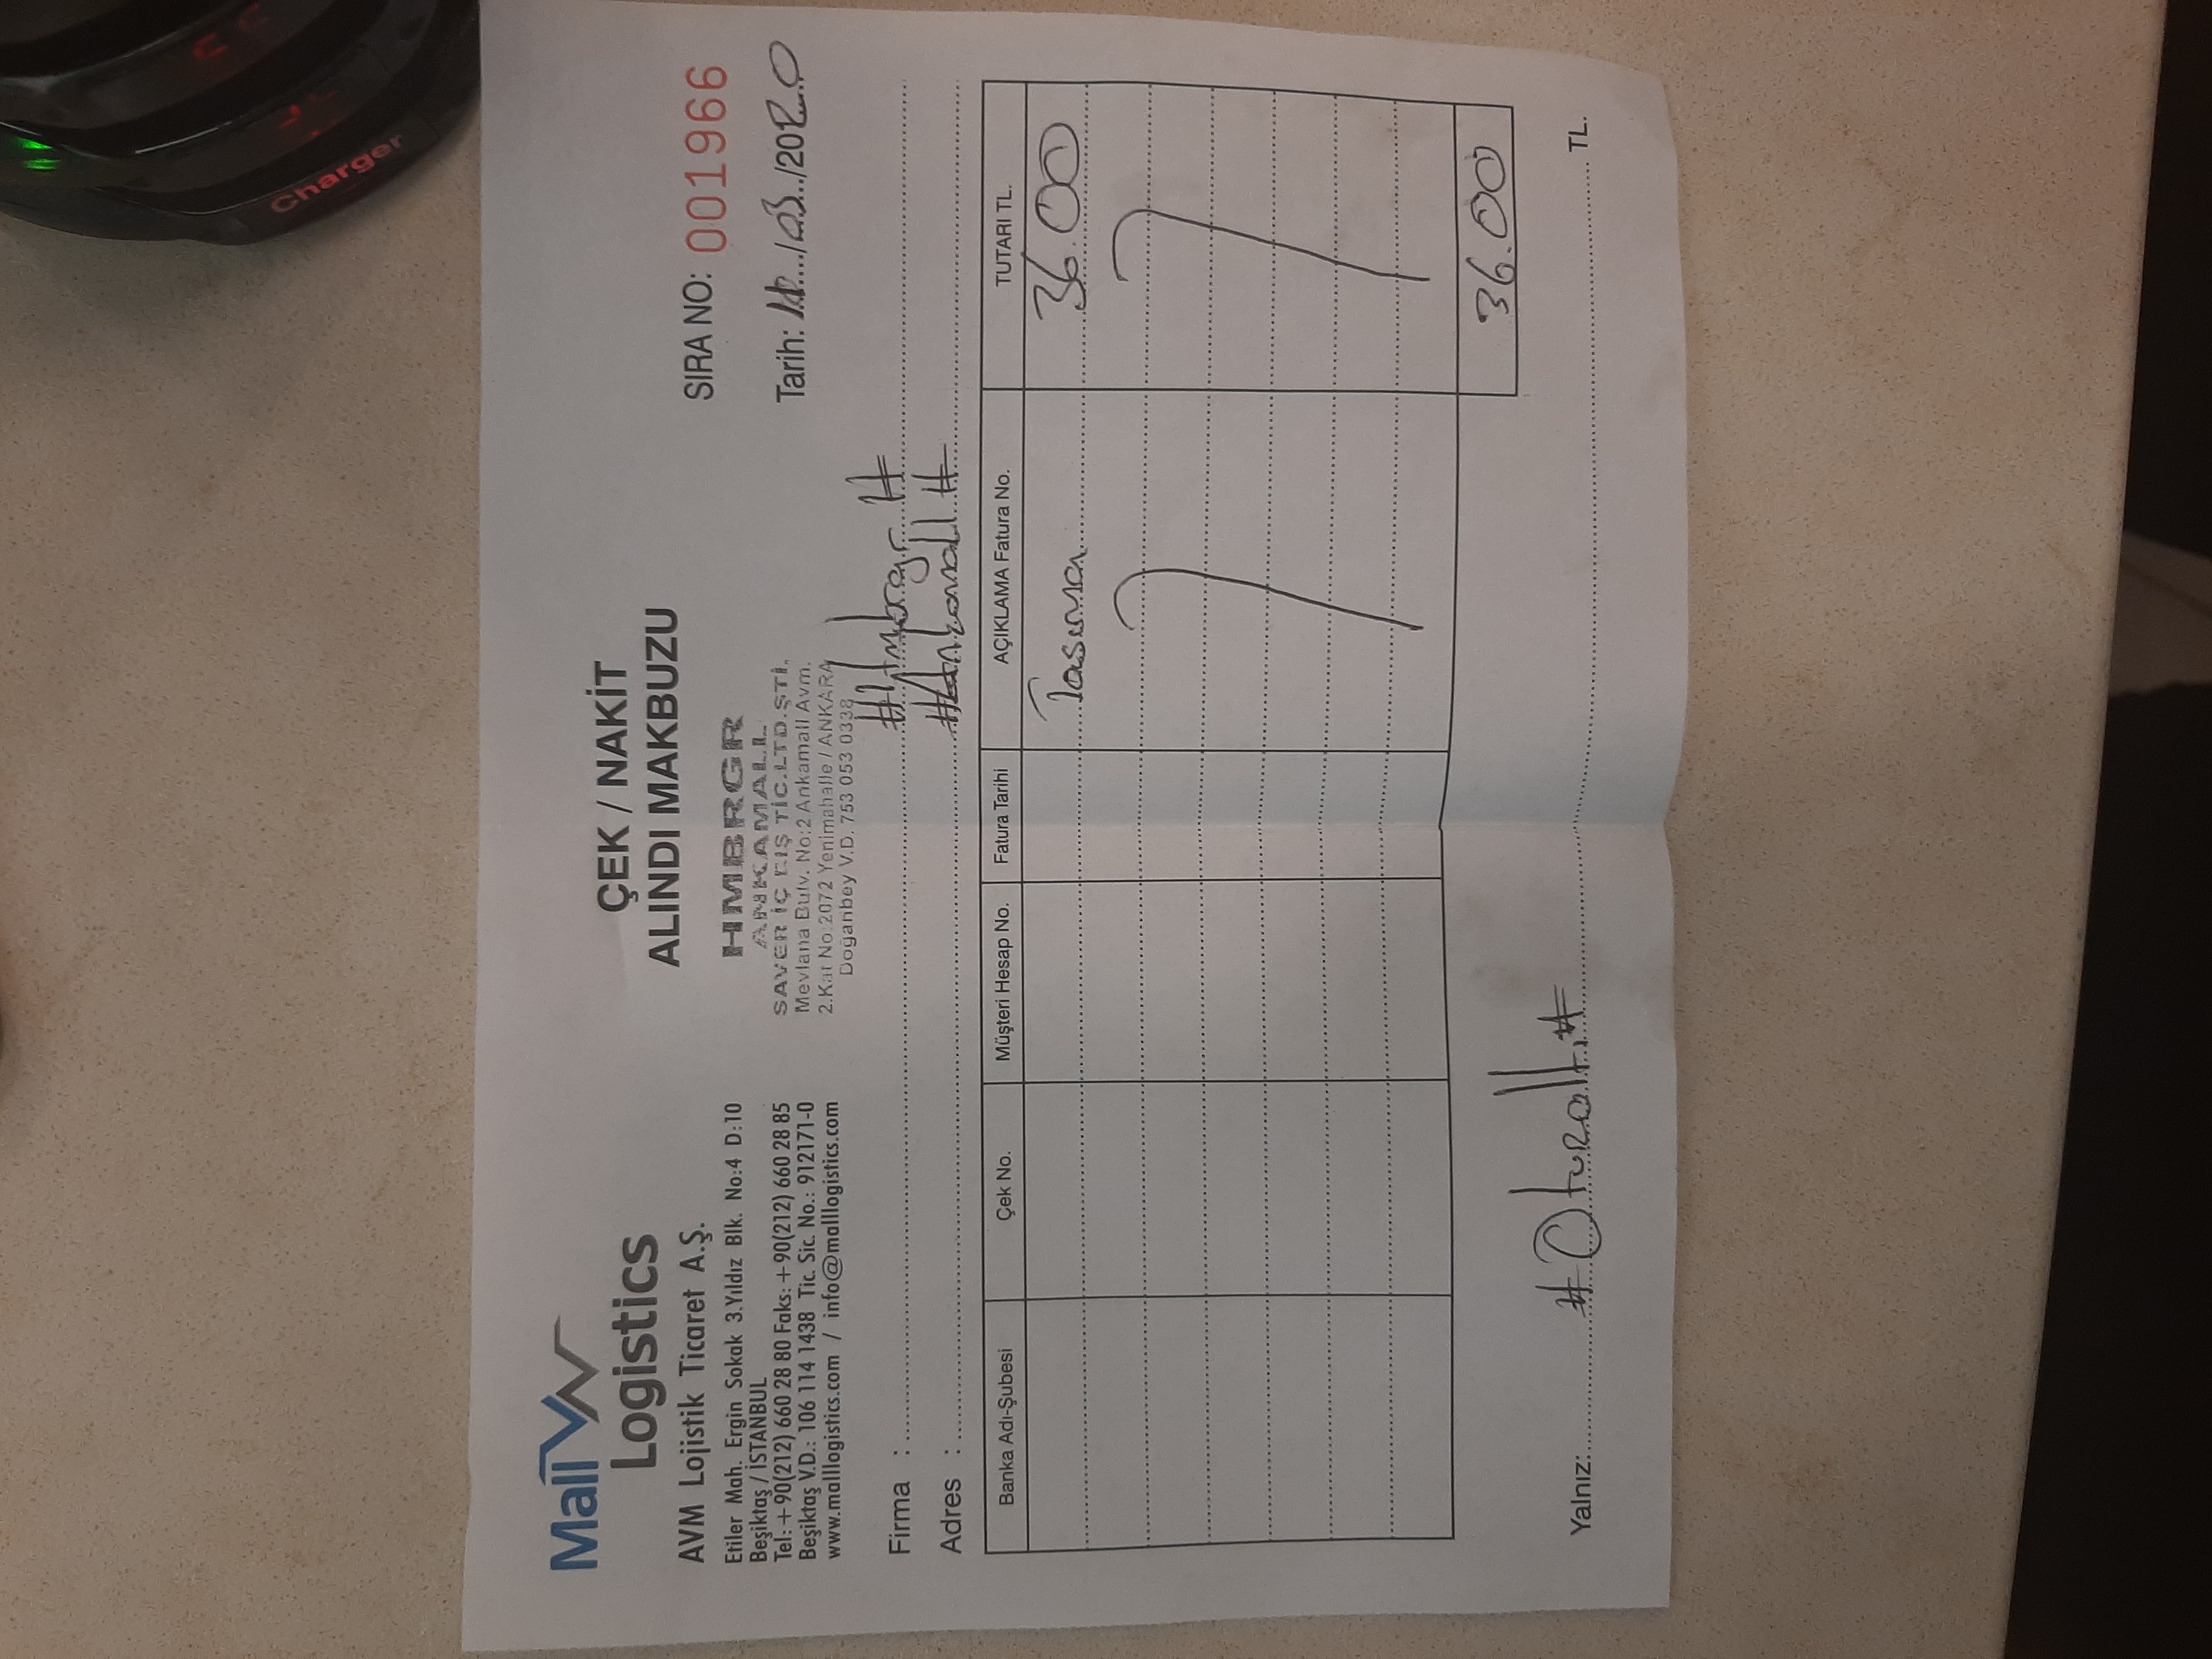 Charger
Mall
Logistics
AVM Lojistik Ticaret A.Ş.
Etiler Mah. Ergin Sokak 3.Yıldız Blk. No:4 D:10
Beşiktaş / İSTANBUL
Tel: +90(212) 660 28 80 Faks: +90(212) 660 28 85
Beşiktaş V.D.: 106 114 1438 Tic. Sic. No.: 912171-0
www.malllogistics.com / info@malllogistics.com
ÇEK / NAKİT
ALINDI MAKBUZU
HMBRGR
ANKAMALL
SAVER İÇ DIŞ TİC.LTD.ŞTİ.
Mevlana Bulv. No:2 Ankamall Avm.
2.Kat No:2072 Yenimahalle / ANKARA
Doğanbey V.D. 753 053 0338
SIRA NO: 001966
Tarih: /03/2020
Firma : #Hmbrgr #
Adres : #Ankamall #
Banka Adı-Şubesi Çek No. Müşteri Hesap No. Fatura Tarihi AÇIKLAMA Fatura No. TUTARI TL.
Tasıma 36.00
36.00
Yalnız: #Oturaltı# TL.